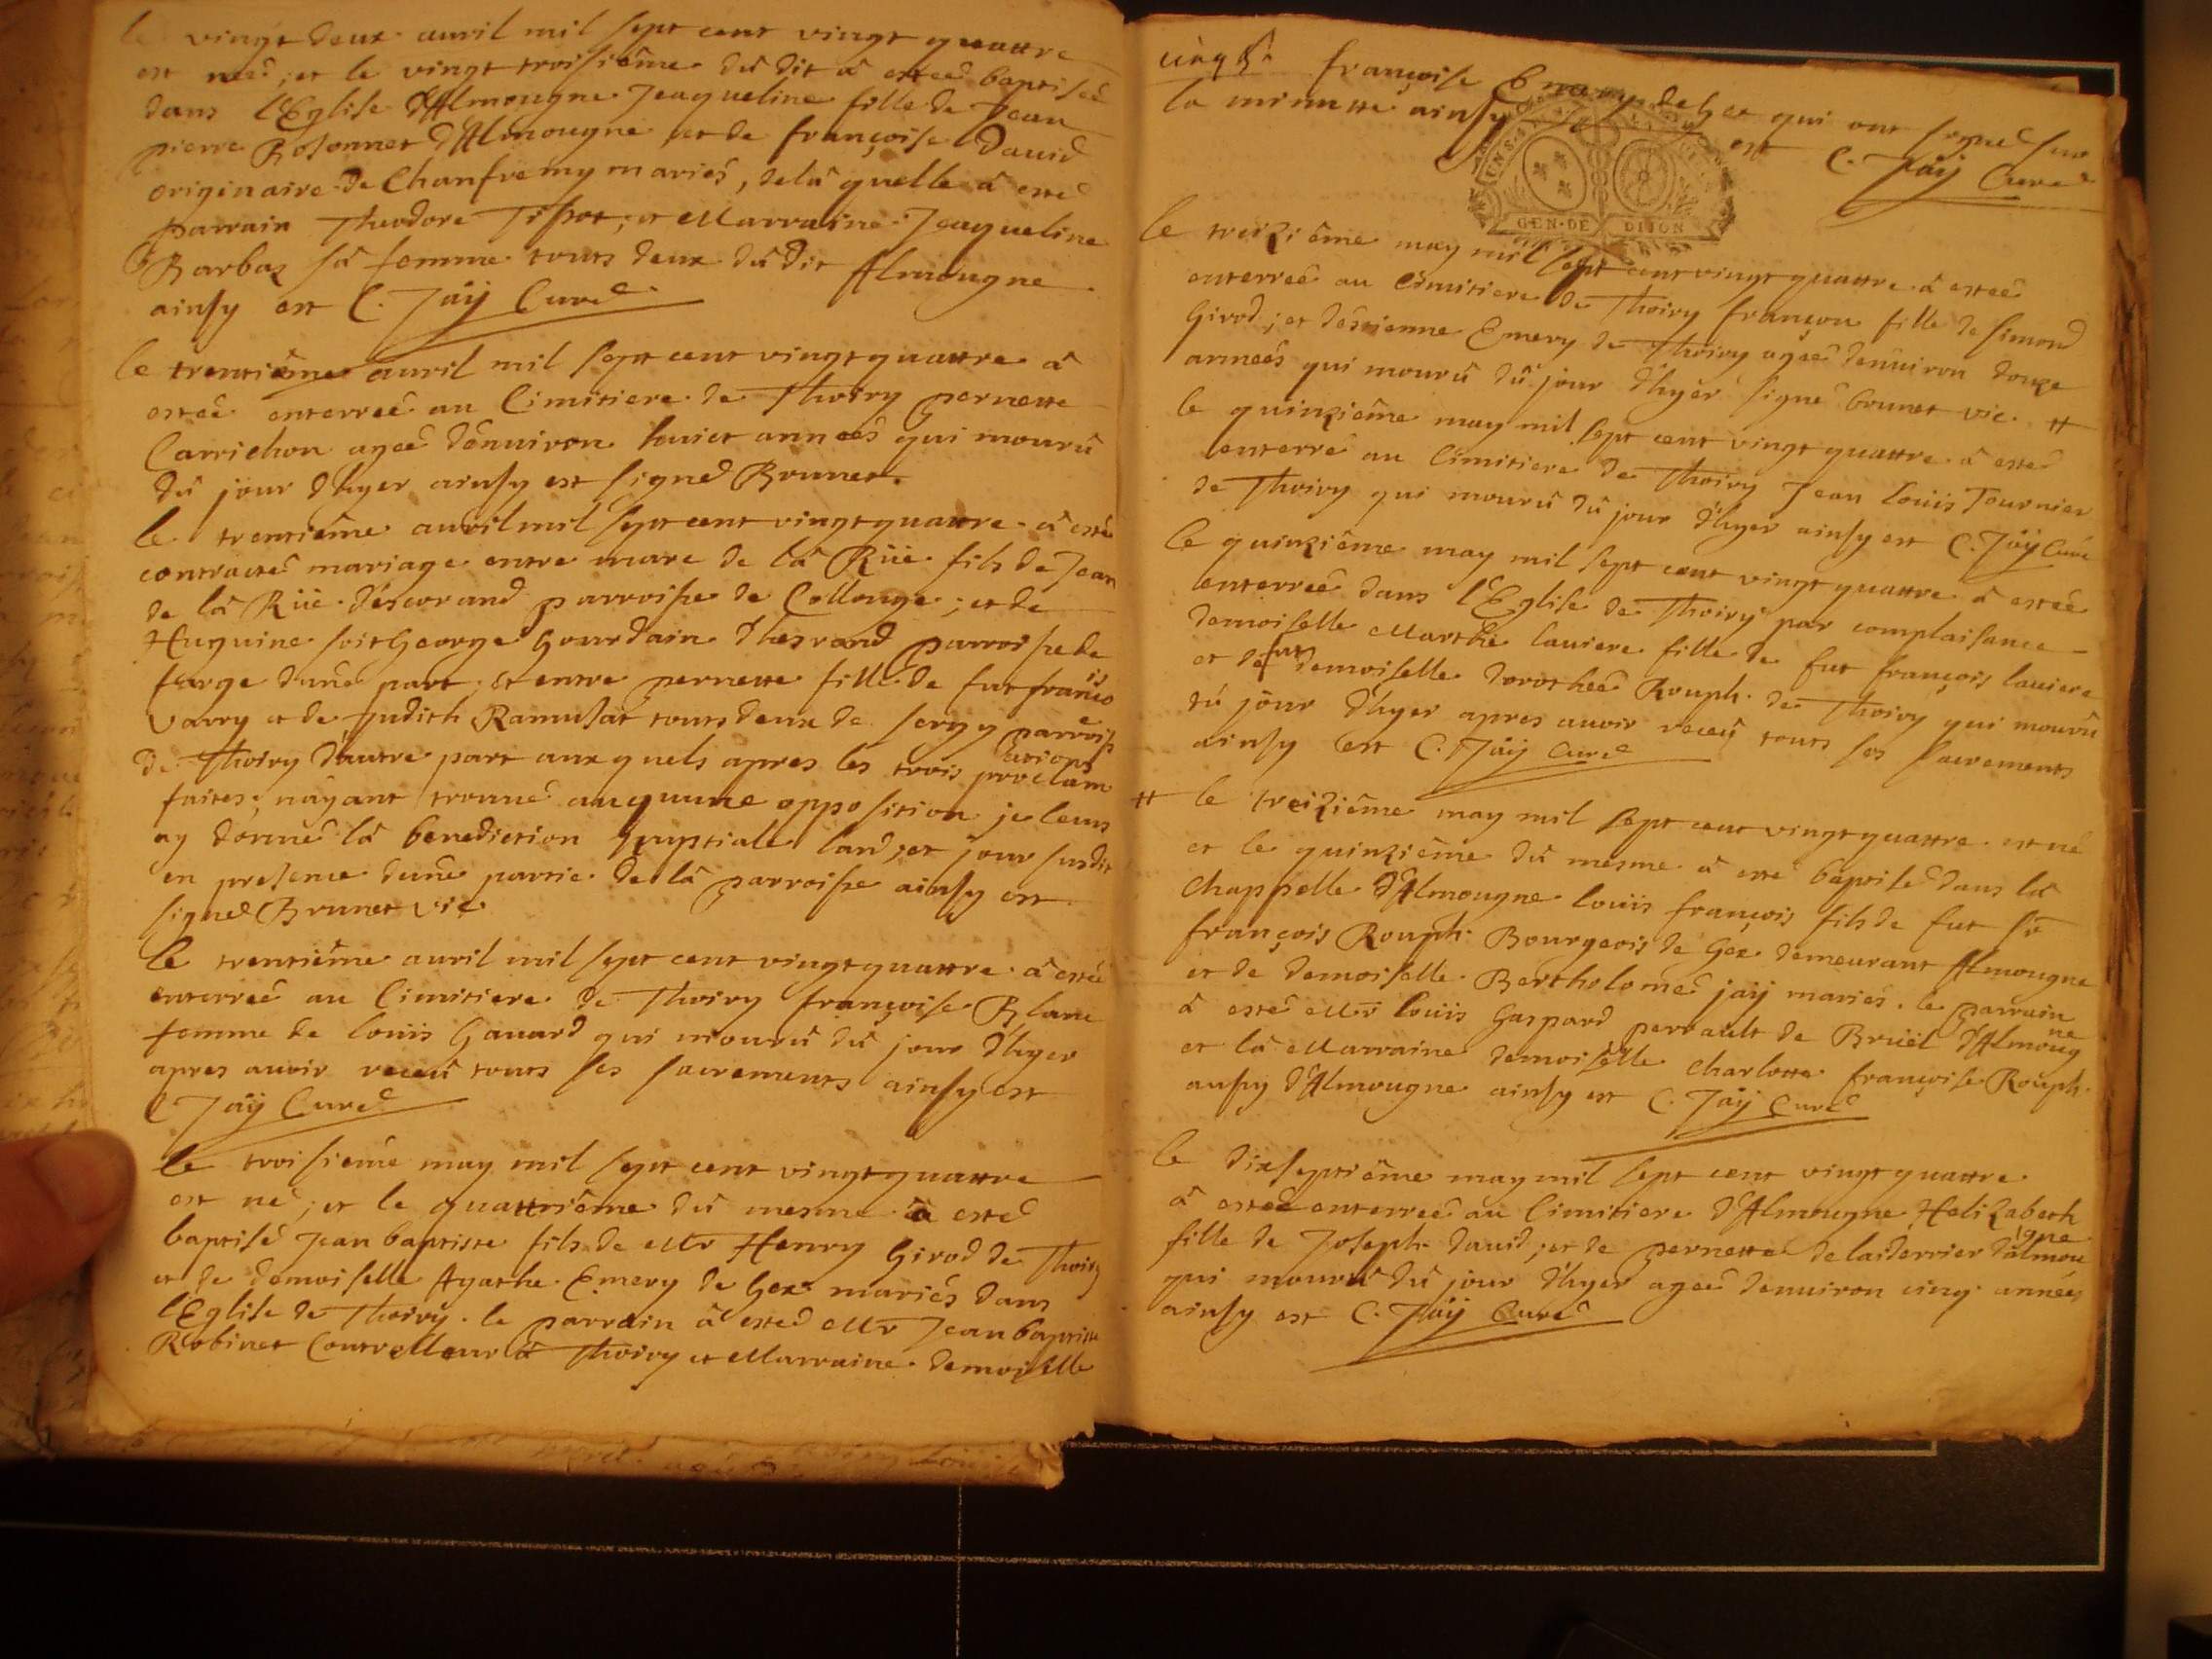 le vingt deux auril mil sept cent vingt quattre
est neé, et le vingt troisiême du dit â esteé baptiseé
dans l'Eglise d'Almougne Jeaqueline fille de Jean
pierre Bosonnet d'Almougne et de françoise Dauid
originaire de Chanfremy mariés, de lâ quelle â esté
parrain Theodore Tissot, et Marraine Jeaqueline
Barbaz sâ femme touts deux dû dit Almougne
ainsy est C. Jaÿ Curé
le trentiême auril mil sept cent vingt quattre â
esteé enterreé au Cimitiere de Thoiry pernette
Carrichon ageé d'enuiron huict anneés qui mourû
dû jour d'hyer ainsy est signé Brunet.
le trentiême auril mil sept cent vingt quattre â esté
contracté mariage entre marc de lâ Rüe fils de Jean
de lâ Rüe d'escorand parroisse de Collonge, et de
Huguine soit George Gourdain d'hesrand parroisse de
farge d'une part, et entre pernette fille de fut franços
varry et de Judith Ramusat touts deux de sergy parroisse
de Thoiry d'autre part aux quels apres les trois proclamations
faites, n'ayant trouué auquune opposition je leurs
ay donné lâ benediction Nuptiale l'and, et jour susdit
en presence d'une partie de lâ parroisse ainsy est
signé Brunet vic.
le trentiême auril mil sept cent vingt quattre â esteé
enterreé au Cimitiere de Thoiry françoise Blanc
femme de louis Gauard qui mourû dû jour d'hyer
apres auoir receû touts ses sacrements ainsy est
C Jaÿ Curé
le troisiême may mil sept cent vingt quattre
est né, et le quattriême dû mesme â esté
baptisé Jean baptiste fils de Mr Henry Girod de Thoiry
et de demoiselle Agathe Emery de Gex mariés dans
l'Eglise de Thoiry. le parrain â esté Mr Jean baptiste
Robinet Controlleur â Thoiry et Marraine demoiselle
françoise Emery de Gex qui ont signé sur
la minutte ainsy est C. Jaÿ Curé
GEN·DE DIJON
le treiziême may mil sept cent vingt quattre â esteé
enterreé au Cimitiere de Thoiry françon fille de simond
Girod, et d'estienne Emery de Thoiry ageé d'enuiron douze
anneés qui mourû dû jour d'hyer signé brunet vic. #
le quinziême may mil sept cent vingt quattre â esté
enterré au Cimitiere de Thoiry Jean louis Tournier
de Thoiry qui mourû dû jour d'hyer ainsy est C. Jaÿ Curé
le quinziême may mil sept cent vingt quattre â esteé
enterreé dans l'Eglise de Thoiry par complaisance
demoiselle Marthe lauiere fille de fut françois lauiere
et de fut demoiselle dorotheé Rouph de Thoiry qui mourû
dû jour d'hyer apres auoir receû touts ses sacrements
ainsy est C. Jaÿ Curé
# le treiziême may mil sept cent vingt quattre est né
et le quinziême dû mesme â esté baptisé dans lâ
chappelle d'Almougne louis françois fils de fut sr
françois Rouph Bourgeois de Gex demeurant Almougne
et de demoiselle Bertholomeé jaÿ mariés. le parrain
â esté Mr louis Gaspard perrault de Brüel d'Almougne
et lâ Marraine demoiselle Charlotte françoise Rouph
aussy d'Almougne ainsy est C. Jaÿ Curé
le dixseptiême may mil sept cent vingt quattre
â esteé enterreé au Cimitiere d'Almougne Helizabeth
fille de Joseph dauid, et de pernette delaiderrier d'almougne
qui mourû dû jour d'hyer ageé denuiron cinq anneés
ainsy est C. Jaÿ Curé